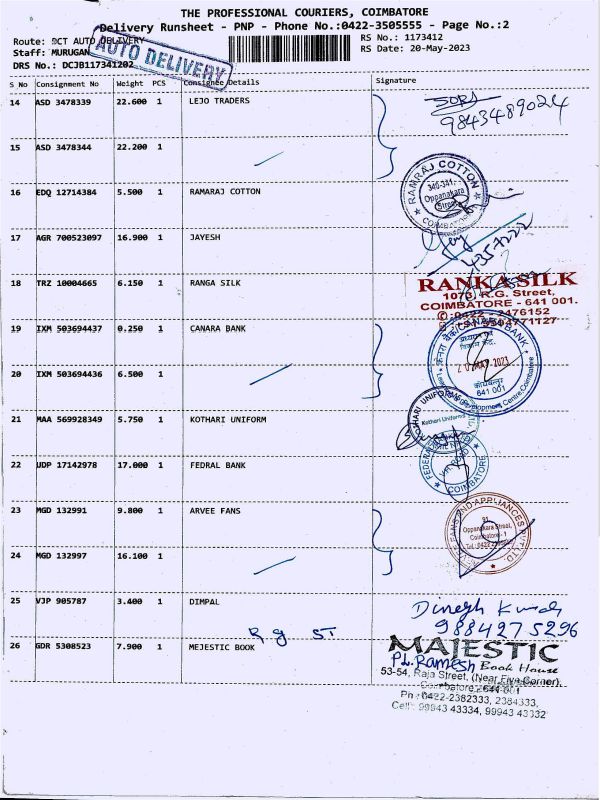 THE PROFESSIONAL COURIERS, COIMBATORE
Delivery Runsheet - PNP - Phone No.:0422-3505555 - Page No.:2
Route: DCT AUTO DELIVERY
RS No.: 1173412
Staff: MURUGAN
RS Date: 20-May-2023
DRS No.: DCJB117341202
AUTO DELIVERY
S No Consignment No Weight PCS Consignee Details Signature
14 ASD 3478339 22.600 1 LEJO TRADERS
9843489024
15 ASD 3478344 22.200 1
16 EDQ 12714384 5.500 1 RAMARAJ COTTON
RAMRAJ COTTON
340-341,
Oppanakara
Street,
COIMBATORE
17 AGR 700523097 16.900 1 JAYESH
18 TRZ 10004665 6.150 1 RANGA SILK
RANKA SILK
1073, R.G. Street,
COIMBATORE - 641 001.
19 IXM 503694437 0.250 1 CANARA BANK
CANARA BANK
20 MAY 2023
641 001
20 IXM 503694436 6.500 1
21 MAA 569928349 5.750 1 KOTHARI UNIFORM
KOTHARI UNIFORMS
Kothari Uniforms
22 UDP 17142978 17.000 1 FEDRAL BANK
FEDERAL
COIMBATORE
23 MGD 132991 9.800 1 ARVEE FANS
FANS AND APPLIANCES PVT LTD
Oppanakara Street,
Coimbatore - 1
24 MGD 132997 16.100 1
25 VJP 905787 3.400 1 DIMPAL
Dinesh Kumar
9884275296
R g ST
26 GDR 5308523 7.900 1 MEJESTIC BOOK
MAJESTIC
PL.RAMESH Book House
53-54, Raja Street, (Near Five Corner),
Coimbatore - 641 001
Ph : 0422-2382333, 2384333,
Cell : 99943 43334, 99943 43332